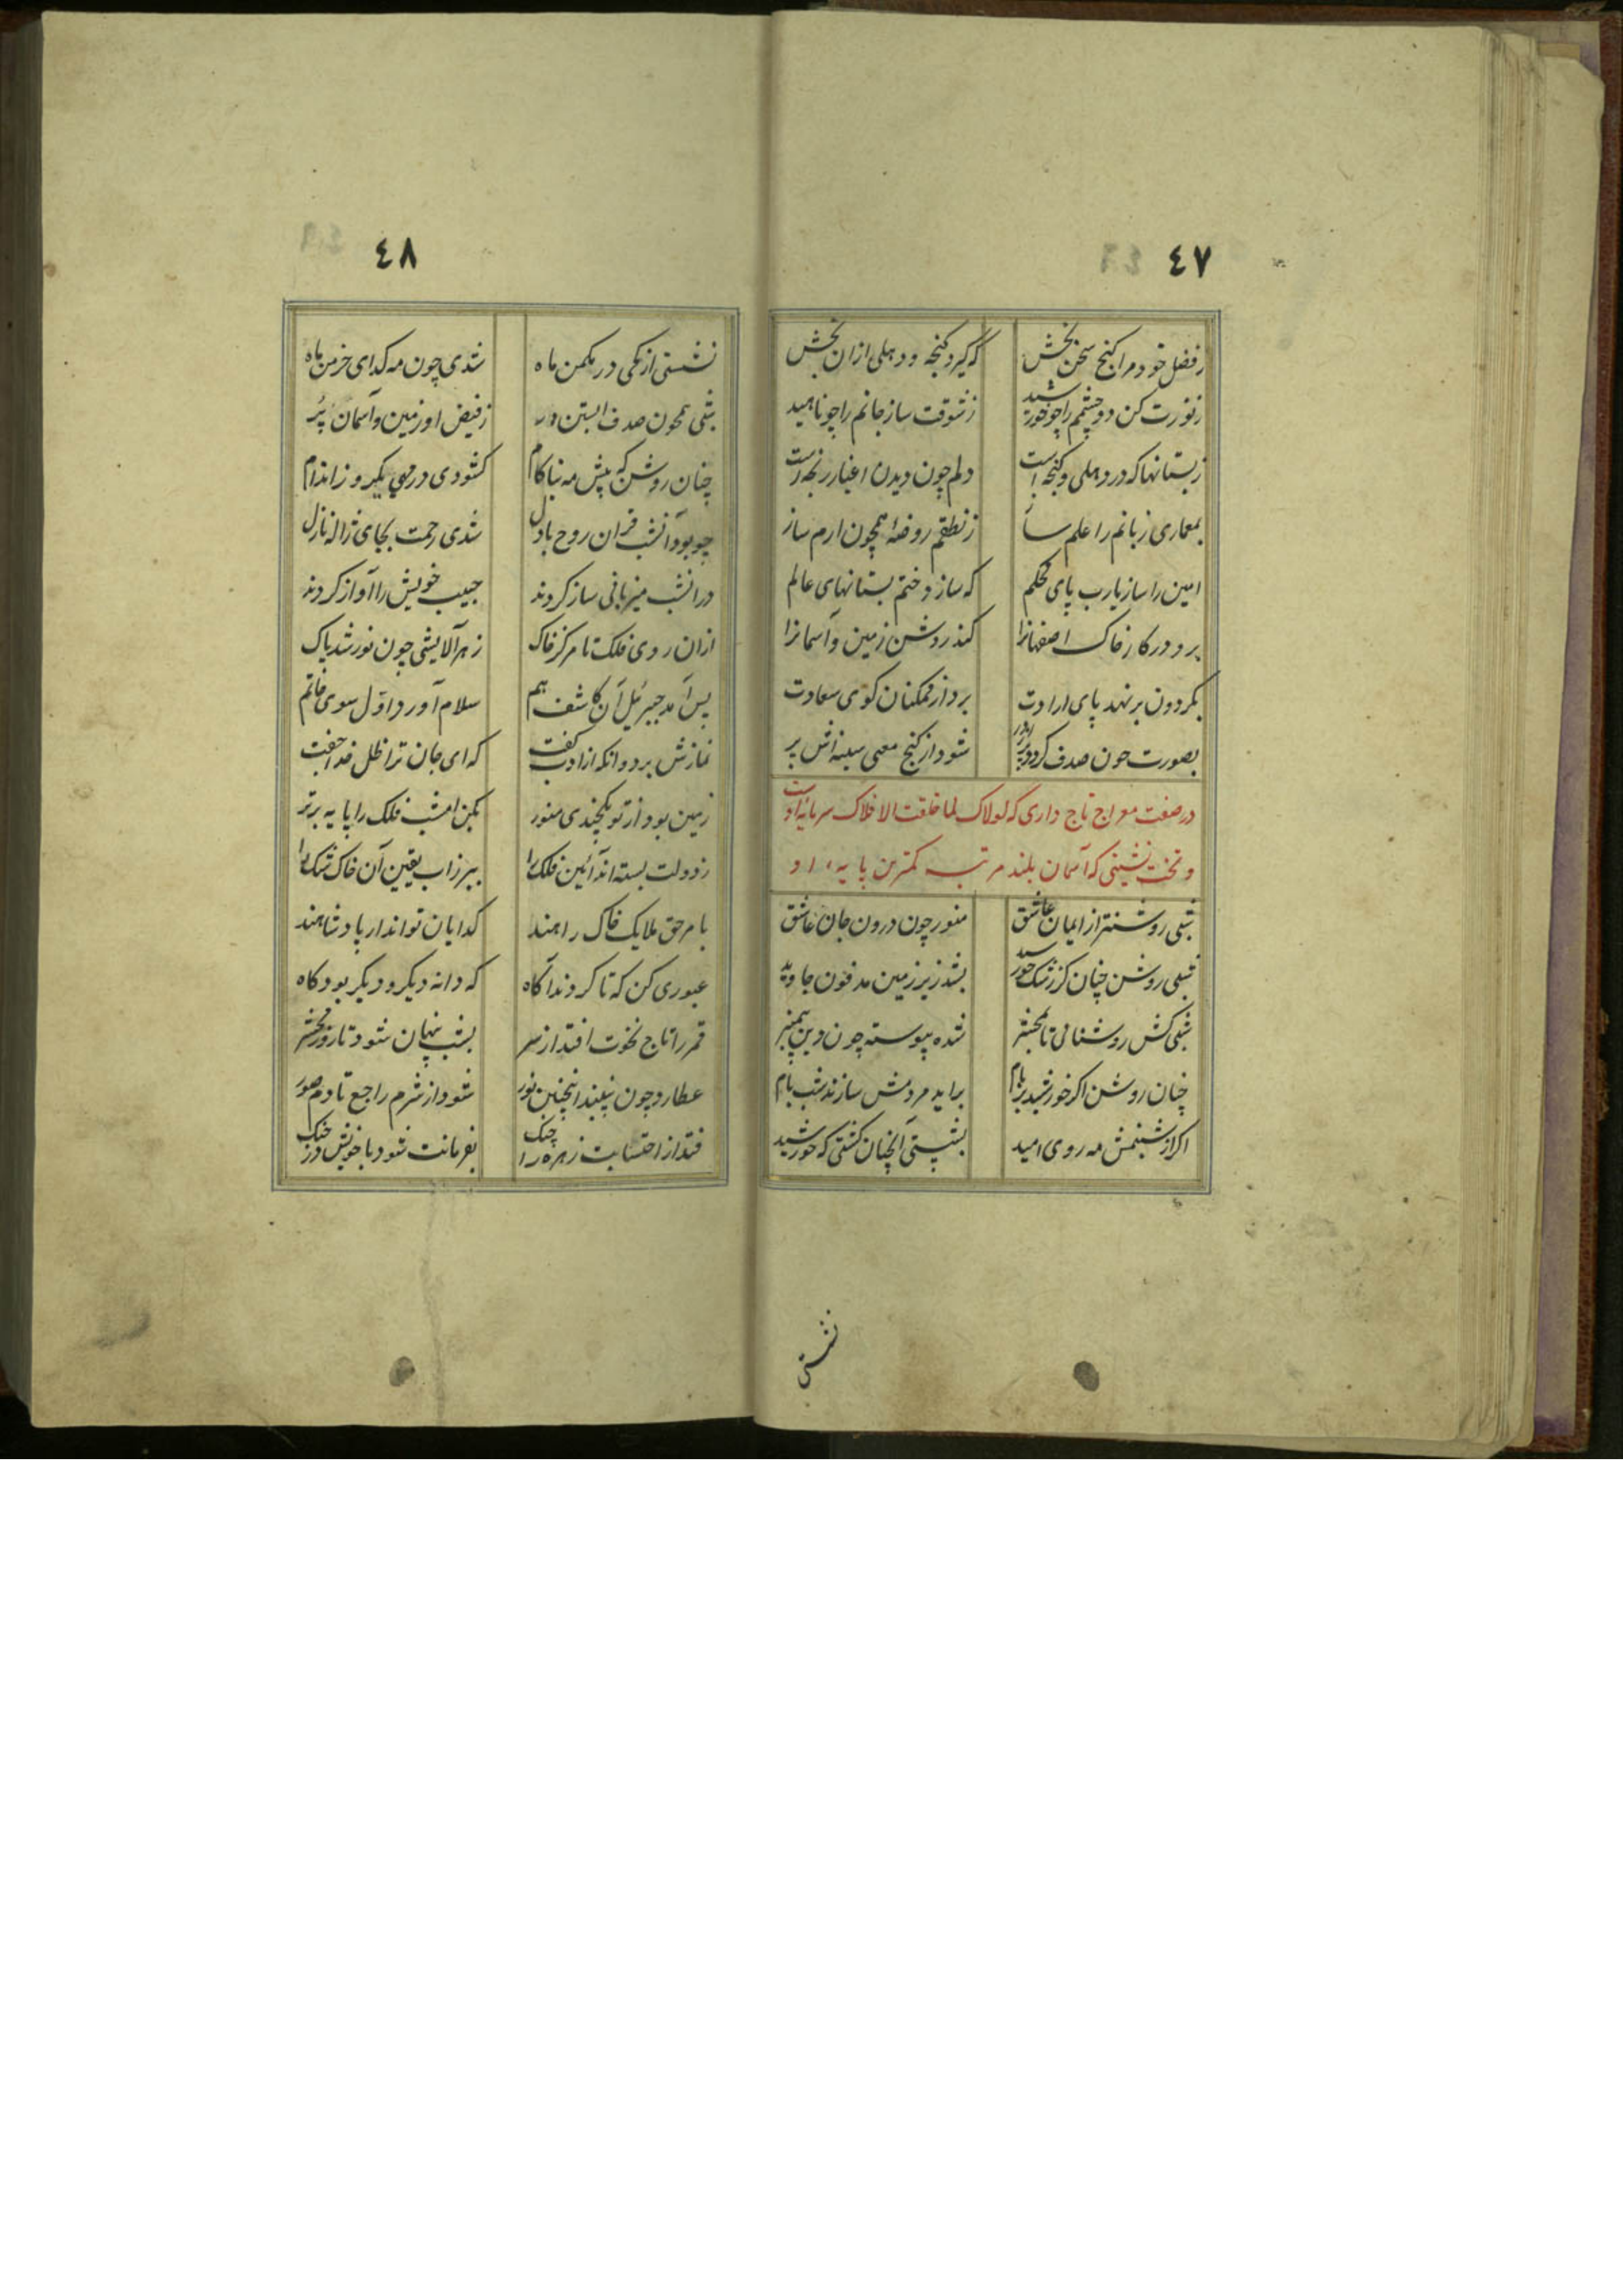 ٤٧
زفضل خود مرا کنج سخن بخش که گیرد کنجه و دهلی ازان بخش
زنورت کن دو چشمم را چو خورشید زشوقت ساز جانم را چو ناهید
زبستانها که در دهلی و کنجه است دلم چون دیدن اغیار رنجه است
بمعماری زبانم را علم ساز زنطقم روضهٔ همچون ارم ساز
امین را ساز یارب پای محکم که سازد ختم بستانهای عالم
برد در کار خاک اصفهانرا کند روشن زمین و آسمانرا
بکردون بر نهد پای ارادت برد از همکنان کوی سعادت
بصورت چون صدف کردد شود از کنج معنی سینه اش پر
در صفت معراج تاج داری که لولاک لما خلقت الافلاک سرمایه اوست
و تخت نشینی که آسمان بلند مرتبه کمترین پایه او
شبی روشنتر از ایمان عاشق منور چون درون جان عاشق
شبی روشن چنان کز رشک خورشید بشد زیر زمین مدفون جاوید
شبی کش روشنائی تا بمحشر شده پیوسته چون دین پیمبر
چنان روشن اگر خورشید بر بام براید مردمش سازند شب نام
اکر از شبنمش مه روی امید بشستی آنچنان کشتی که خورشید
نشستی
٤٨
نشستی از کمی در مکمن ماه شدی چون مه کدای خرمن ماه
شبی همچون صدف ابستن در زفیض او زمین و آسمان پُر
چنان روشن که پیش مه بناکام کشودی در مهی یکروز اندام
چو بود آنشب قران روح با دل شدی رحمت بجای ژاله نازل
درانشب میزبانی ساز کردند حبیب خویش را آواز کردند
ازان روی فلک تا مرکز خاک زهر آلایشی چون نور شد پاک
پس آمد جبرئیل آن کاشف هم سلام آورد اول سوی خاتم
نمازش برد وانکه از ادب کفت که ای جان ترا ظل خدا جفت
زمین بود از تو یکچندی منور بکن امشب فلک را پایه برتر
زدولت بسته اند آئین فلک را ببر زاب یقین آن خاک شک را
بامر حق ملایک خاک راهند کدایان تواند ار پادشاهند
عبوری کن که تا کردند آکاه که دانه دیکر و دیکر بود کاه
قمر را تاج نخوت افتد از سر بشب پنهان شود تا روز محشر
عطارد چون ببیند اینچنین نور شود از شرم راجع تا دم صور
فتد از احتسابت زهره را چنک بفرمانت شود با خویش در جنک